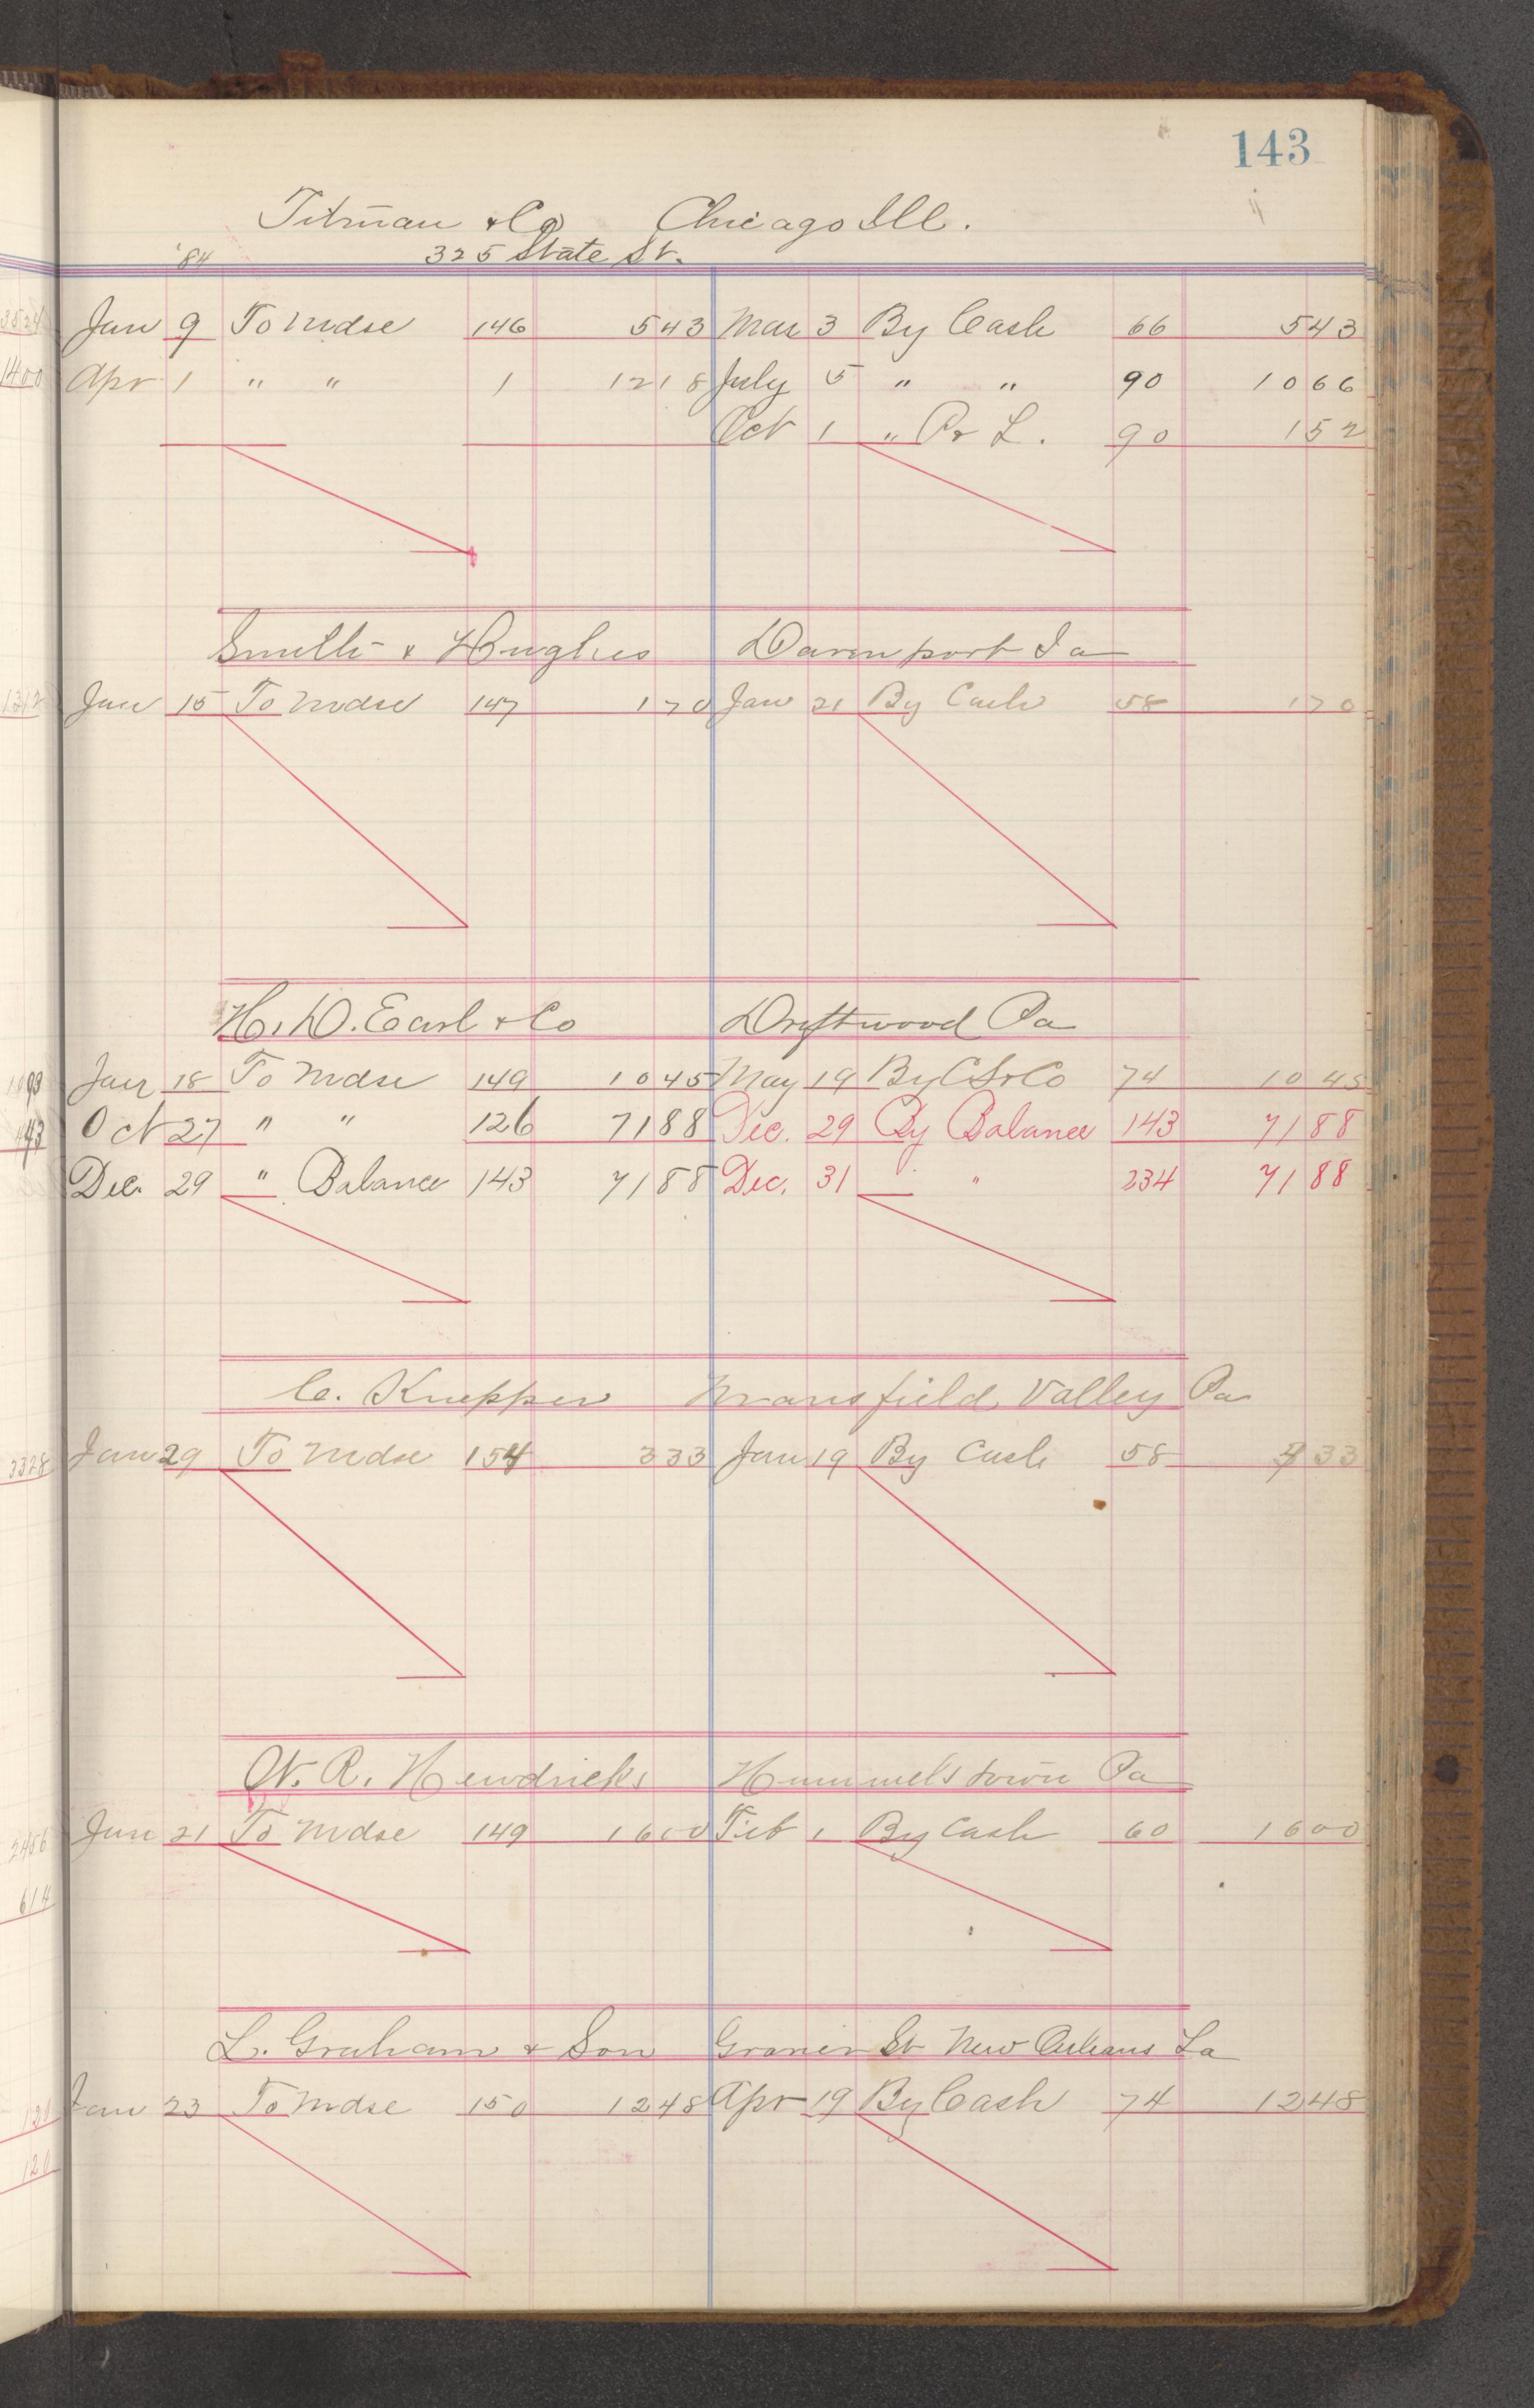 143
Titman & Co Chicago Ill.
'84 325 State St.
Jan 9 To Mdse 146 543 Mar 3 By Cash 66 543
Apr 1 " " 1 1218 July 5 " " 90 1066
Oct 1 " P & L. 90 152
Smith & Hughes Davenport Ia
Jan 15 To Mdse 147 170 Jan 21 By Cash 58 170
H. D. Earl & Co Driftwood Pa
Jan 18 To Mdse 149 1045 May 19 By C S & Co 74 1045
Oct 27 " " 126 7188 Dec. 29 By Balance 143 7188
Dec. 29 " Balance 143 7188 Dec. 31 " 234 7188
C. Knepper Mansfield Valley Pa
Jan 29 To Mdse 154 333 Jan 19 By Cash 58 333
W. R. Hendricks Hummelstown Pa
Jan 21 To Mdse 149 1600 Feb 1 By Cash 60 1600
L. Graham & Son Gravier St New Orleans La
Jan 23 To Mdse 150 1248 Apr 19 By Cash 74 1248